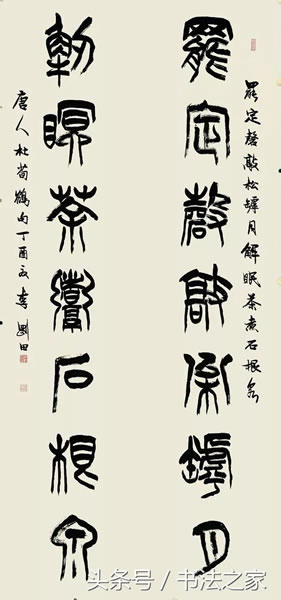 罷定磬敲松罅月解眠茶煮石根泉
罷定磬敲松罅月
解眠茶煮石根泉
唐人杜荀鶴句丁酉夏李剛田
头条号／书法之家